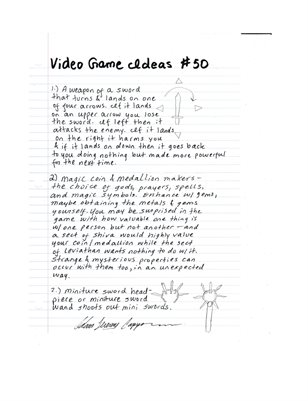 Video Game Ideas #50
1.) A weapon of a sword
that turns & lands on one
of four arrows. If it lands
on an upper arrow you lose
the sword. If left then it
attacks the enemy. If it lands
on the right it harms you
& if it lands on down then it goes back
to you doing nothing but made more powerful
for the next time.
2) Magic Coin & Medallion makers -
the choice of gods, prayers, spells,
and magic symbols. Enhance w/ gems,
maybe obtaining the metals & gems
yourself. You may be surprised in the
game with how valuable one thing is
w/ one person but not another - and
a sect of Shiva would highly value
your coin/medallion while the sect
of Leviathan wants nothing to do w/ it.
Strange & mysterious properties can
occur with them too, in an unexpected
way.
3.) miniture sword head-
piece or miniture sword
wand shoots out mini swords.